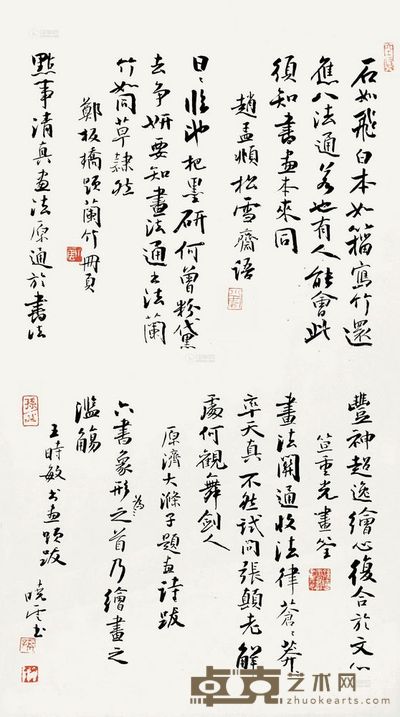 石如飛白木如籀寫竹還
應八法通若也有人能會此
須知書畫本來同
趙孟頫松雪齋語
日日臨池把墨研何曾粉黛
去爭妍要知畫法通書法蘭
竹如同草隸然
鄭板橋題蘭竹冊頁
點事清真畫法原通於書法
豐神超逸繪心復合於文心
笪重光畫筌
畫法關通收法律蒼蒼莽
率天真不然試問張顛老解
處何觀舞劍人
原濟大滌子題畫詩跋
六書象形為之首乃繪畫之
濫觴
王時敏書畫題跋
曉雲書
卓克艺术网
www.zhuokearts.com